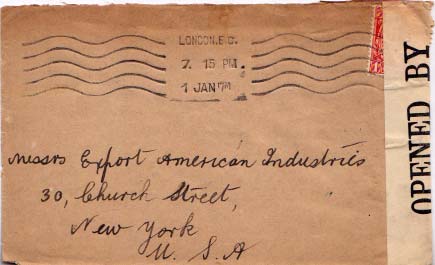 LONDON. E.C.
7. 15 PM
1 JAN
OPENED BY
Messrs Export American Industries
30, Church Street,
New York
U. S. A